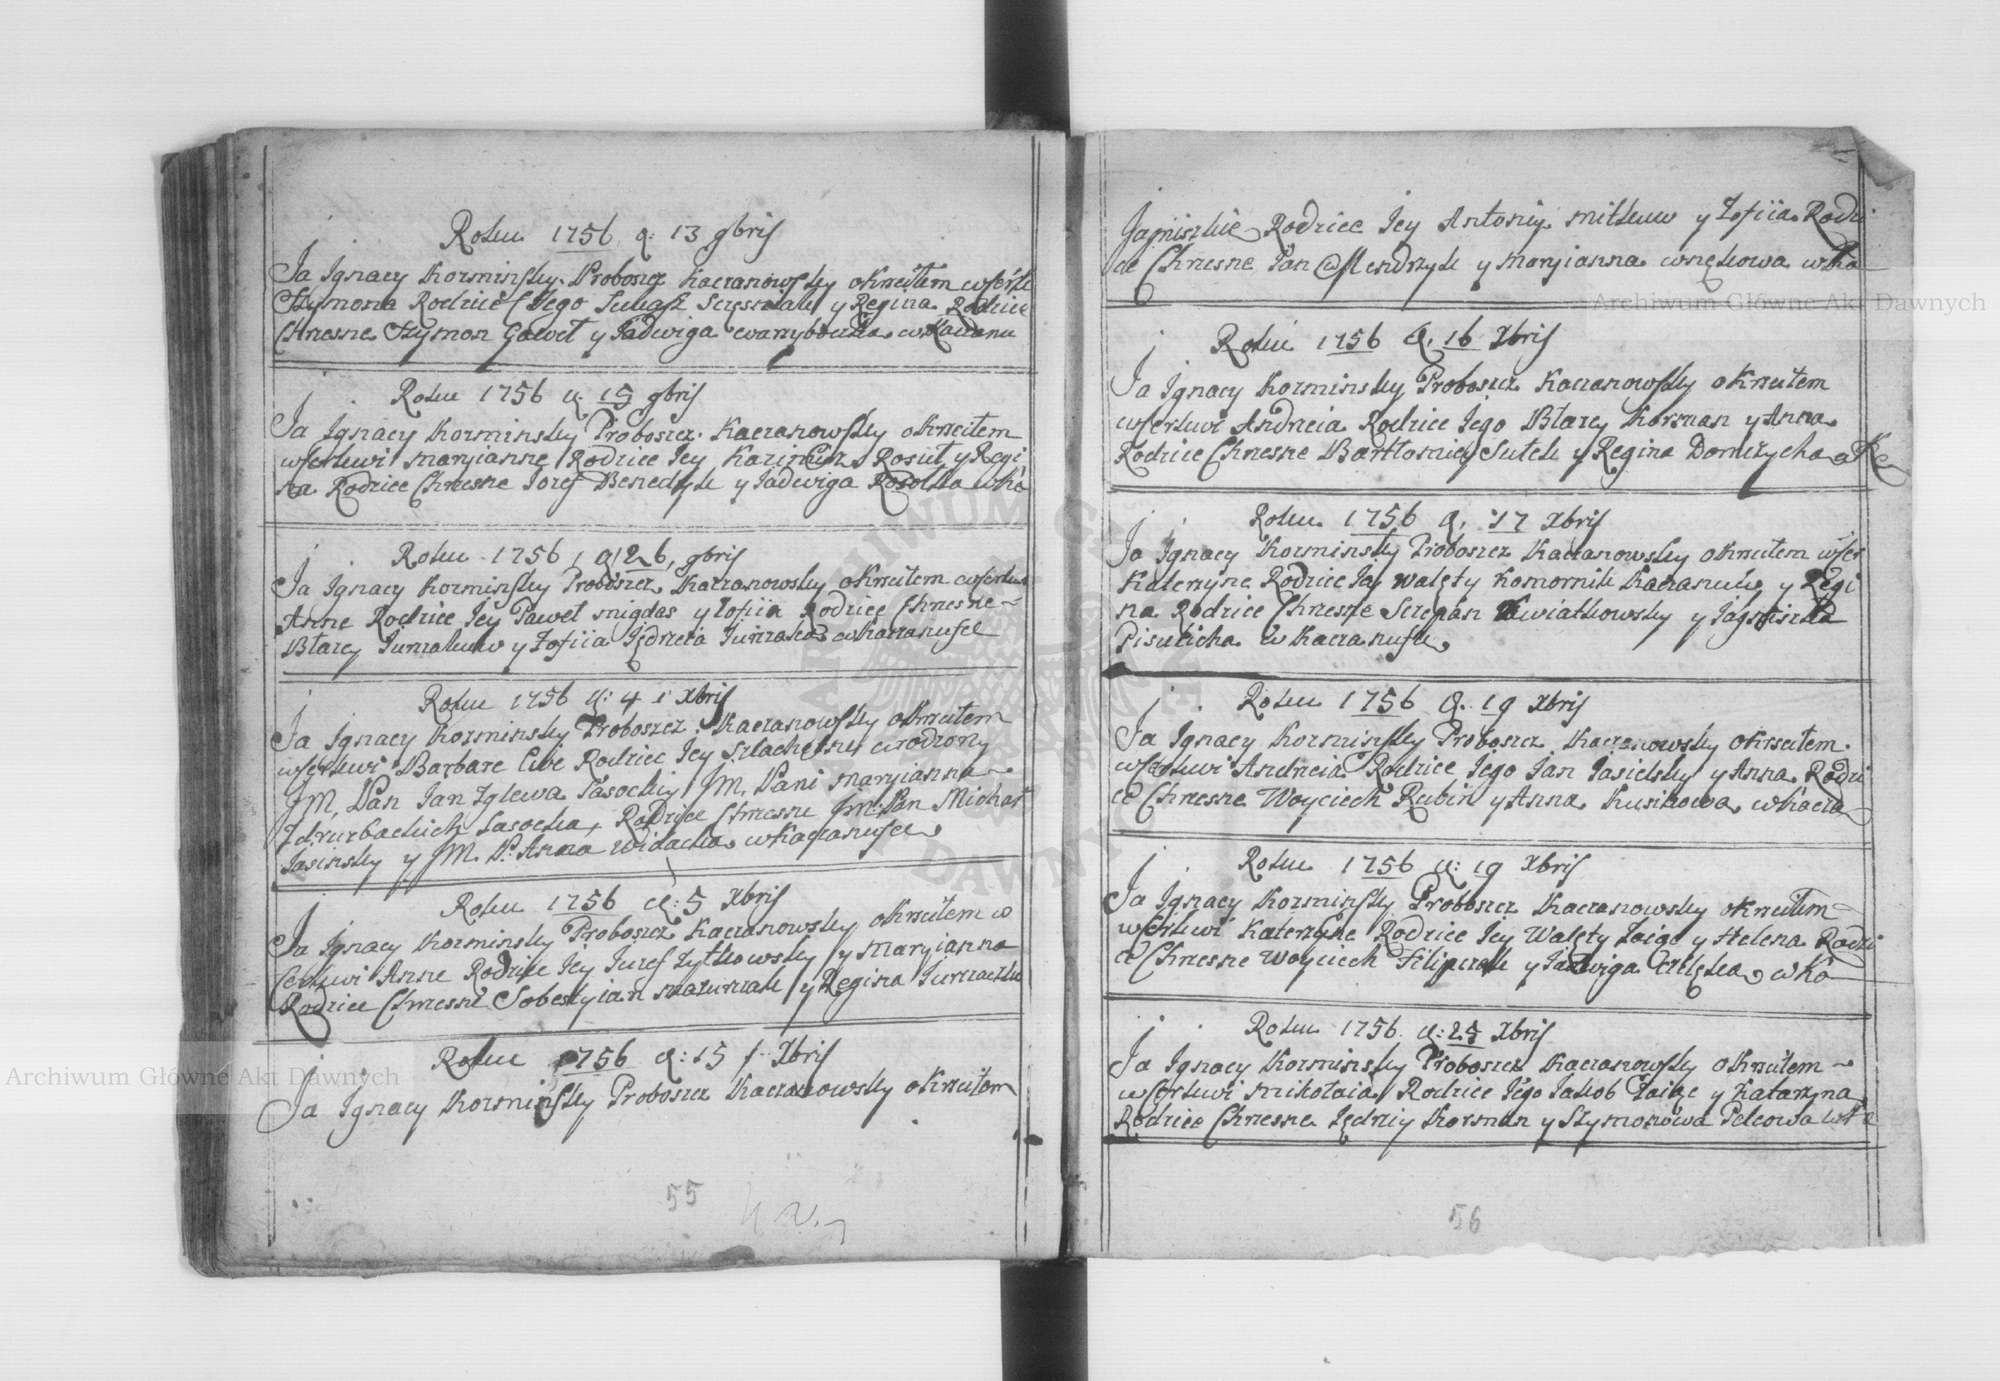 Roku 1756 d: 13 9bris
Ja Ignacy Kozminsky Proboscz Kaczanowsky okrzciłem wserk
Szymona Rodzice Jego Łukasz y Regina Rodzice
Chrzesne Szymon Gaweł y Jadwiga w Kaczanu
Roku 1756 d. 15 9bris
Ja Ignacy Kozminsky Proboscz Kaczanowsky okrzciłem
wserkwi Maryianne Rodzice Jey Kazimierz Rosuł y Regi
na Rodzice Chrzesne Jozef Benedyk y Jadwiga Rosolka wKa
Roku 1756 d 26, 9bris
Ja Ignacy Kozminsky Proboscz Kaczanowsky okrzciłem wserkwi
Anne Rodzice Jey Paweł Migdas y Zofiia Rodzice Chrzesne
Błazey y Zofiia Jędrzeia w Kaczanufce
Roku 1756 d: 4 Xbris
Ja Ignacy Kozminsky Proboscz Kaczanowsky okrzciłem
wserkwi Barbare Rodzice Jey Szlachetnie urodzony
JM, Pan Jan Zglewa Sasocky JM, Pani Maryianna
Sasocka, Rodzice Chrzesne JM: Pan Michał
Jasinsky y JM. P: Anna Widacka w Kaczanufce
Roku 1756 d: 5 Xbris
Ja Ignacy Kozminsky Proboscz Kaczanowsky okrzciłem w
serkwi Anne Rodzice Jey Juzef Zytkowsky y Maryianna
Rodzice Chrzesne Sobestyian Mazurczak y Regina
Roku 1756 d: 15 Xbris
Ja Ignacy Kozminsky Proboscz Kaczanowsky okrzciłem
55
Jagniszkie Rodzice Jey Antoniy Mitkuw y Zofiia Rodzi
ce Chrzesne Jan Mendrzyk y Maryianna wKa
Roku 1756 d. 16 Xbris
Ja Ignacy Kozminsky Proboscz Kaczanowsky okrzciłem
wserkwi Andrzeia Rodzice Jego Błazey Korsman y Anna
Rodzice Chrzesne Bartłomiey Sutek y Regina
Roku 1756 d. 17 Xbris
Ja Ignacy Kozminsky Proboscz Kaczanowsky okrzciłem wser
Katerzyne Rodzice Jey Walęty Komornik Kaczanuw y Regi
na Rodzice Chrzesne Sczepan Kwiatkowsky y Jagniszka
Pisulicha w Kaczanufce
Roku 1756 d. 19 Xbris
Ja Ignacy Kozminsky Proboscz Kaczanowsky okrzciłem
wserkwi Andrzeia Rodzice Jego Jan Jasielsky y Anna Rodzi
ce Chrzesne Woyciech Rubin y Anna Kusikowa w Kacza
Roku 1756 d: 19 Xbris
Ja Ignacy Kozminsky Proboscz Kaczanowsky okrzciłem
wserkwi Katerzyne Rodzice Jey Walęty Zaige y Helena Rodzi
ce Chrzesne Woyciech Filipczak y Jadwiga wKa
Roku 1756 d: 25 Xbris
Ja Ignacy Kozminsky Proboscz Kaczanowsky okrzciłem
wserkwi Mikołaia Rodzice Jego Jakob Zaige y Katarzyna
Rodzice Chrzesne Jędrzey Korsman y Szymonowa Pelcowa wKa
56
Archiwum Główne Akt Dawnych
Archiwum Główne Akt Dawnych